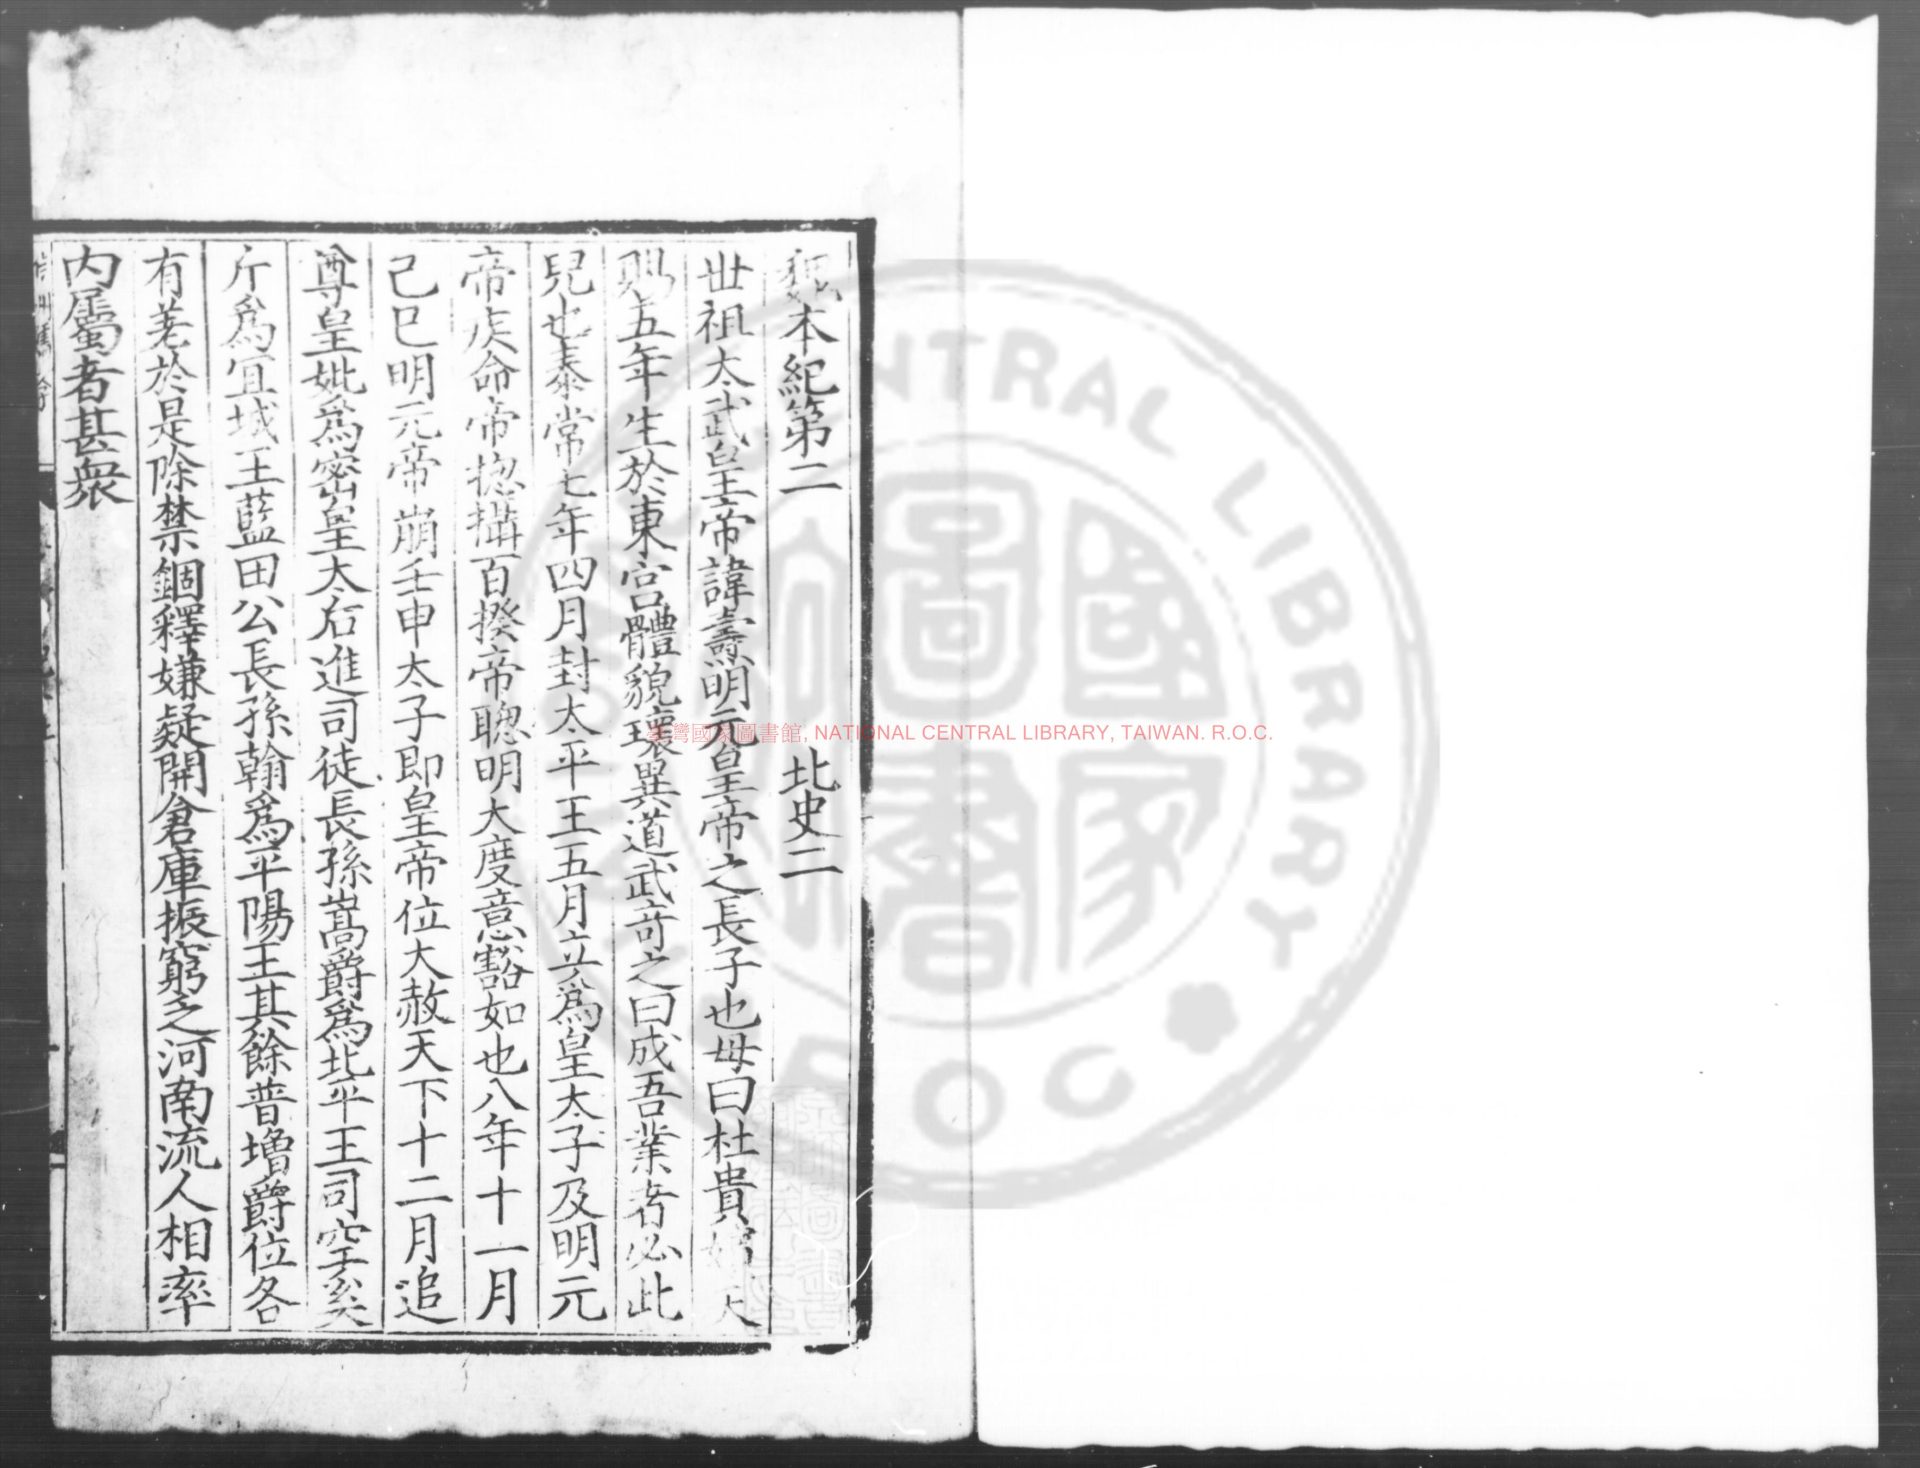 魏本紀第二 北史二
世祖太武皇帝諱燾明元皇帝之長子也母曰杜貴嬪天
賜五年生於東宮體貌瓌異道武奇之曰成吾業者必此
兒也泰常七年四月封太平王五月立爲皇太子及明元
帝疾命帝揔攝百揆帝聰明大度意豁如也八年十一月
己巳明元帝崩壬申太子即皇帝位大赦天下十二月追
尊皇妣爲密皇太后進司徒長孫嵩爵爲北平王司空奚
斤爲宜城王藍田公長孫翰爲平陽王其餘普增爵位各
有差於是除禁錮釋嫌疑開倉庫振窮乏河南流人相率
內屬者甚衆
臺灣國家圖書館, NATIONAL CENTRAL LIBRARY, TAIWAN. R.O.C.
國家圖書館
NATIONAL CENTRAL LIBRARY